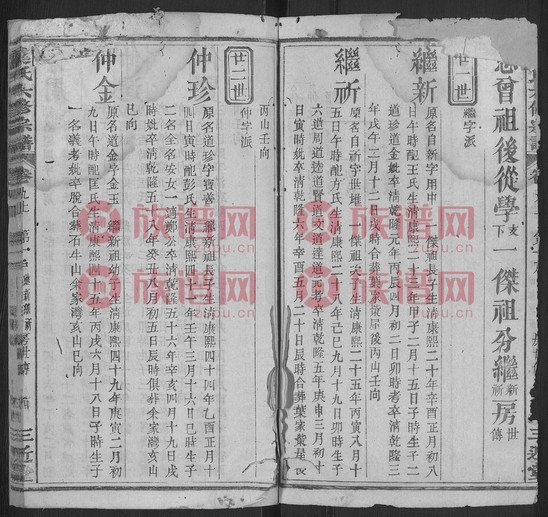 曾祖後從學支下一傑祖分繼新繼祈房世傳
廿一世
繼字派
繼新
原名自新字用中一傑祖長子生清康熙二十年辛酉正月初八
日午時配王氏生清康熙二十三年甲子二月十五日子時生子二
道珍道金妣卒清乾隆元年丙辰四月初二日卯時考卒清乾隆三
年戊午二月十二日戌時合葬葉家棠屋後丙山壬向
繼祈
原名自祈字世堪一傑祖次子生清康熙二十五年丙寅八月十
六日五日午時配方氏生清康熙二十八年己巳九月十九日卯時生子
六道周道逵道賢道交道達道元考卒清乾隆五年庚申三月初十
日寅時妣卒清乾隆六年辛酉五月二十日辰時合葬葉家棠是
丙山壬向
廿二世
仲字派
仲珍
原名道珍字寶善繼新祖長子生清康熙四十四年乙酉正月十
四日寅時配彭氏生清康熙四十一年壬午三月十六日巳時生子
二名全名安女一適鄭公卒清乾隆五十六年辛亥四月十九日戌
時妣卒清乾隆五十八年癸丑八月初五日辰時俱葬余家灣亥山
巳向
仲金
原名道金字金玉繼新祖幼子生清康熙四十九年庚寅二月初
九日午時配匡氏生清康熙四十五年丙戌六月十八日子時生子
一名義考妣卒脫合葬石牛山余家灣亥山巳向
氏六修宗譜
卷九世
第一戶
三近堂
族譜网